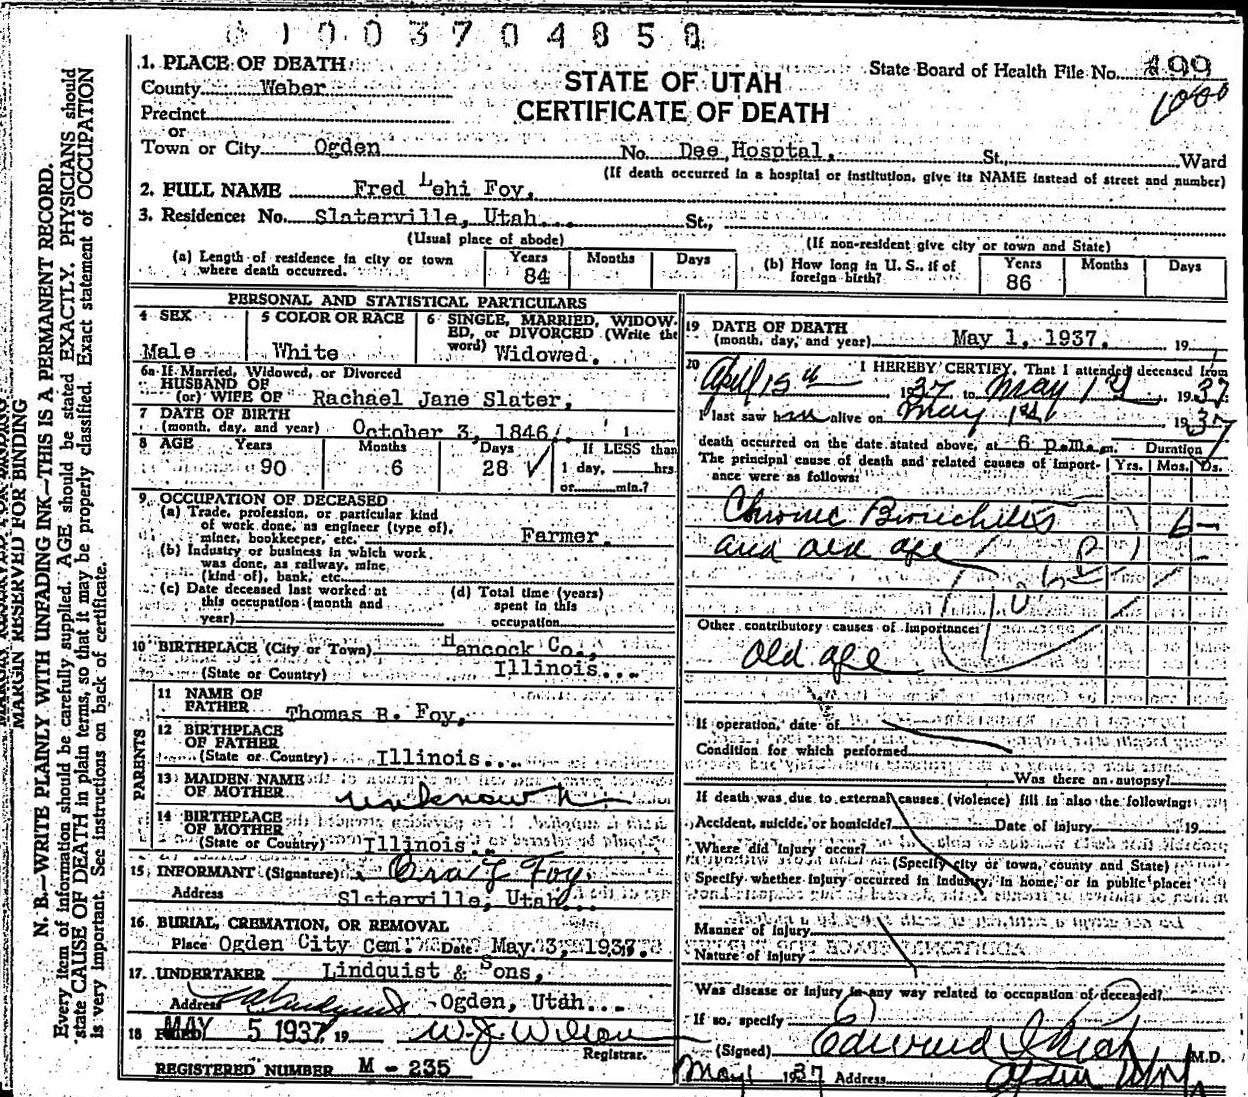 0 1 0 0 3 7 0 4 8 5 8
1. PLACE OF DEATH
County Weber
Precinct
or
Town or City Ogden No. Dee Hosptal, St., Ward
STATE OF UTAH
CERTIFICATE OF DEATH
State Board of Health File No. 199
1000
(If death occurred in a hospital or institution, give its NAME instead of street and number)
2. FULL NAME Fred Lehi Foy,
3. Residence: No. Slaterville, Utah... St.,
(Usual place of abode) (If non-resident give city or town and State)
(a) Length of residence in city or town where death occurred. Years 84 Months Days
(b) How long in U. S., if of foreign birth? Years 86 Months Days
PERSONAL AND STATISTICAL PARTICULARS
4 SEX Male
5 COLOR OR RACE White
6 SINGLE, MARRIED, WIDOWED, or DIVORCED (Write the word) Widowed.
6a If Married, Widowed, or Divorced
HUSBAND OF
(or) WIFE OF Rachael Jane Slater,
7 DATE OF BIRTH
(month, day, and year) October 3, 1846
8 AGE Years 90 Months 6 Days 28 If LESS than
1 day, hrs.
or min.?
9. OCCUPATION OF DECEASED
(a) Trade, profession, or particular kind
of work done, as engineer (type of),
miner, bookkeeper, etc. Farmer.
(b) Industry or business in which work
was done, as railway, mine
(kind of), bank, etc.
(c) Date deceased last worked at
this occupation (month and
year)
(d) Total time (years)
spent in this
occupation
10 BIRTHPLACE (City or Town) Hancock Co.,
(State or Country) Illinois...
PARENTS
11 NAME OF
FATHER Thomas B. Foy,
12 BIRTHPLACE
OF FATHER
(State or Country) Illinois...
13 MAIDEN NAME
OF MOTHER unknown
14 BIRTHPLACE
OF MOTHER
(State or Country) Illinois..
15 INFORMANT (Signature) Foy
Address Slaterville, Utah...
16. BURIAL, CREMATION, OR REMOVAL
Place Ogden City Cem. Date May 3, 1937.
17. UNDERTAKER Lindquist & Sons,
Address Ogden, Utah...
18 FILED MAY 5 1937 19 W. J. Wilson
Registrar.
REGISTERED NUMBER M - 235
19 DATE OF DEATH
(month, day, and year) May 1, 1937. 19
20 I HEREBY CERTIFY, That I attended deceased from
April 15th 1937 to May 1st, 1937
I last saw him alive on May 1st 1937
death occurred on the date stated above, at 6 p.m. m. Duration
The principal cause of death and related causes of importance were as follows: Yrs. Mos. Ds.
Chronic Bronchitis 6 -
and old age
Other contributory causes of importance:
Old age
If operation, date of
Condition for which performed
Was there an autopsy?
If death was due to external causes (violence) fill in also the following:
Accident, suicide, or homicide? Date of injury 19
Where did injury occur?
(Specify city or town, county and State)
Specify whether injury occurred in industry, in home, or in public place:
Manner of injury
Nature of injury
Was disease or injury in any way related to occupation of deceased?
If so, specify
(Signed) Edward M.D.
May 1 1937 Address Ogden
MARGIN RESERVED FOR BINDING
N. B.—WRITE PLAINLY WITH UNFADING INK—THIS IS A PERMANENT RECORD.
Every item of information should be carefully supplied. AGE should be stated EXACTLY. PHYSICIANS should
state CAUSE OF DEATH in plain terms, so that it may be properly classified. Exact statement of OCCUPATION
is very important. See instructions on back of certificate.